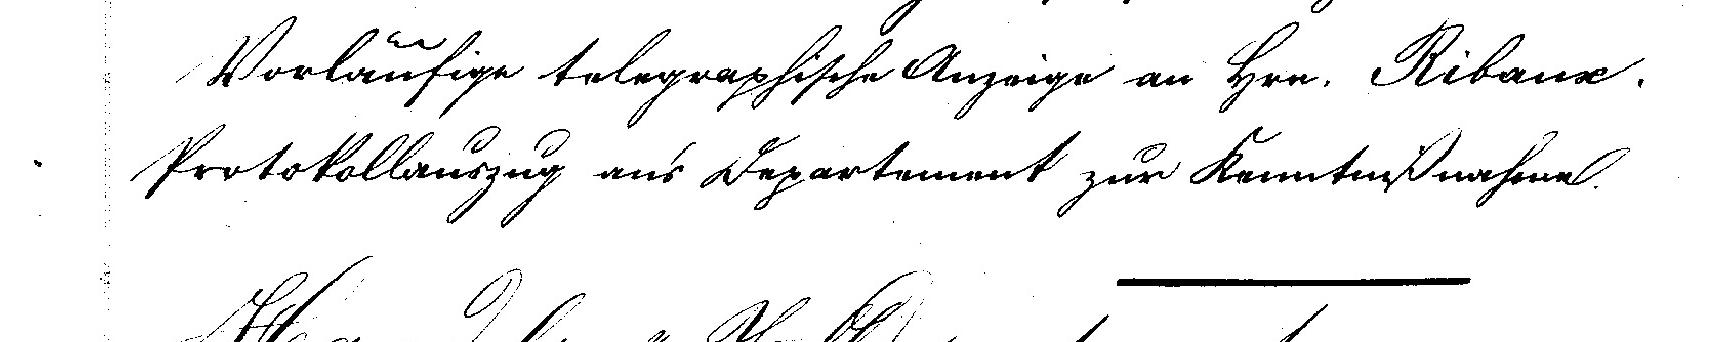 Vorläufige telegraphische Anzeige an Hrn. Ribaux.
Protokollauszug an's Departement zur Kenntnißnahme.